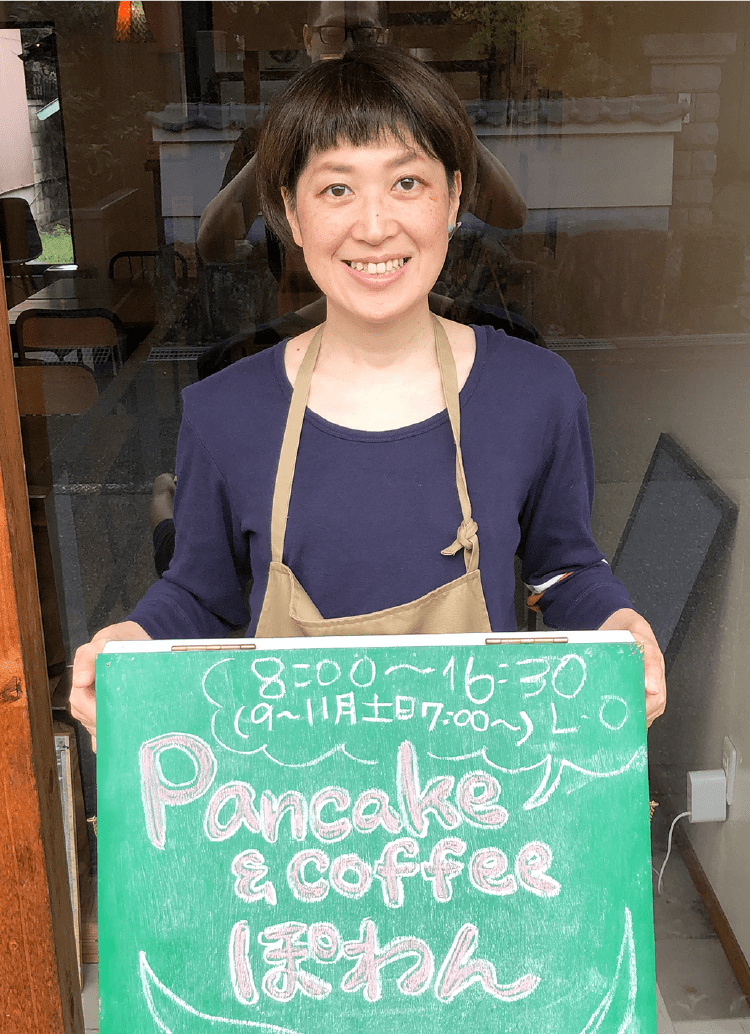 8:00〜16:30
(9〜11月土日7:00〜) L.O
Pancake
& coffee
ぽわん